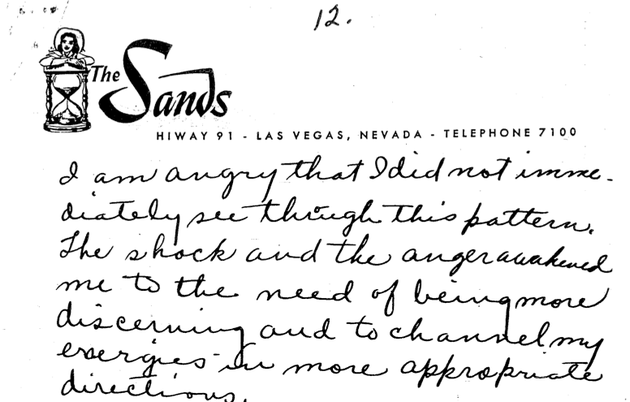 12.
The Sands
HIWAY 91 - LAS VEGAS, NEVADA - TELEPHONE 7100
I am angry that I did not imme-
diately see through this pattern.
The shock and the anger awakened
me to the need of being more
discerning and to channel my
energies in more appropriate
directions.